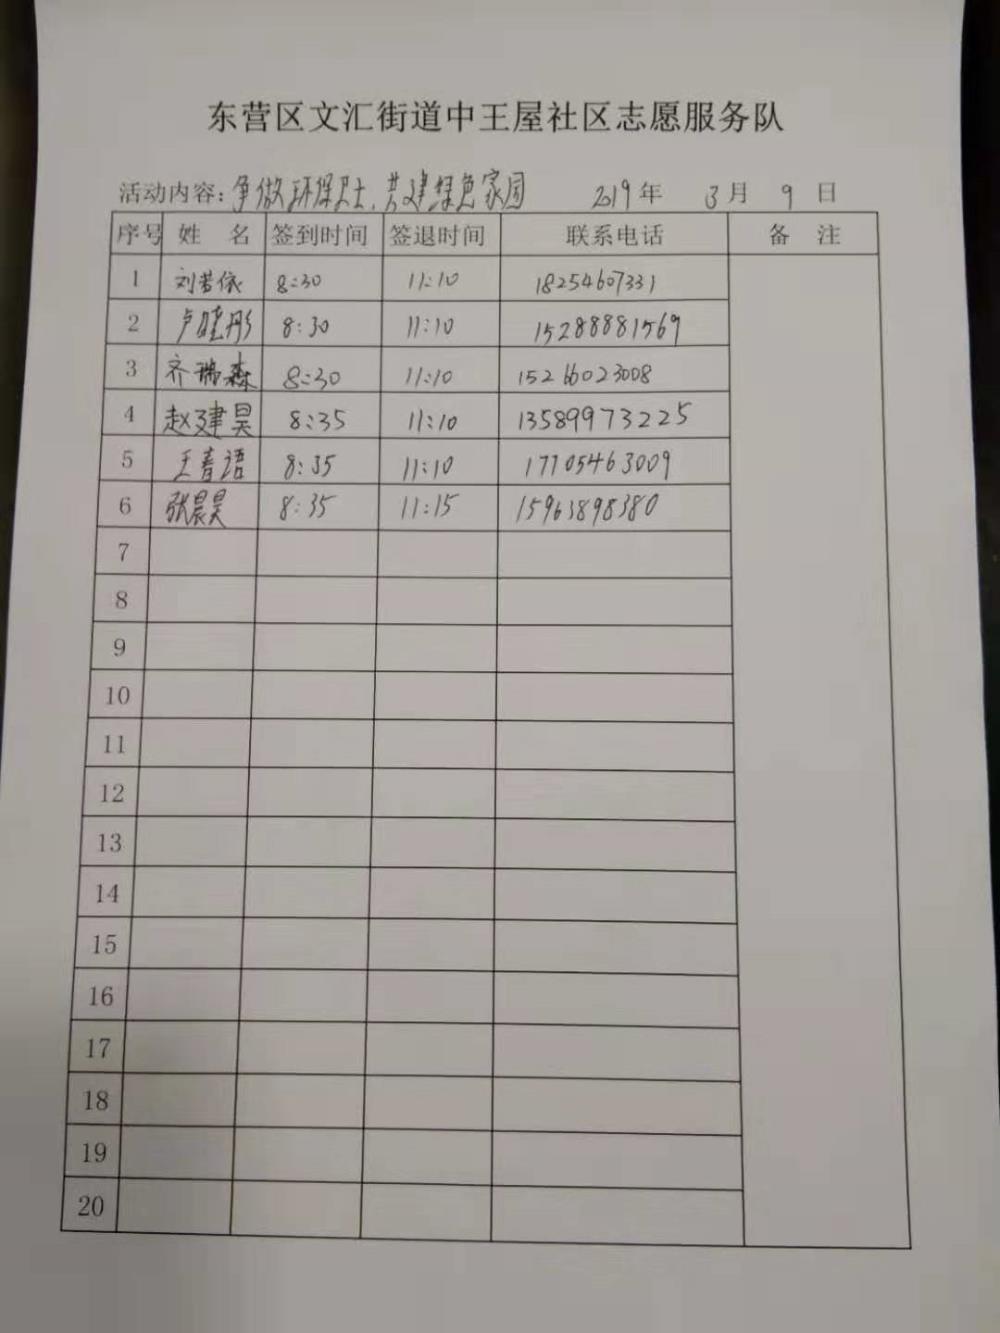 东营区文汇街道中王屋社区志愿服务队
活动内容：争做环保卫士，共建绿色家园 2019年 3月 9日
序号 姓 名 签到时间 签退时间 联系电话 备 注
1 刘若依 8:30 11:10 18254607331
2 卢晓彤 8:30 11:10 15288881569
3 齐瑞森 8:30 11:10 15266023008
4 赵建昊 8:35 11:10 13589973225
5 王春语 8:35 11:10 17705463009
6 张晨昊 8:35 11:15 15963898380
7
8
9
10
11
12
13
14
15
16
17
18
19
20